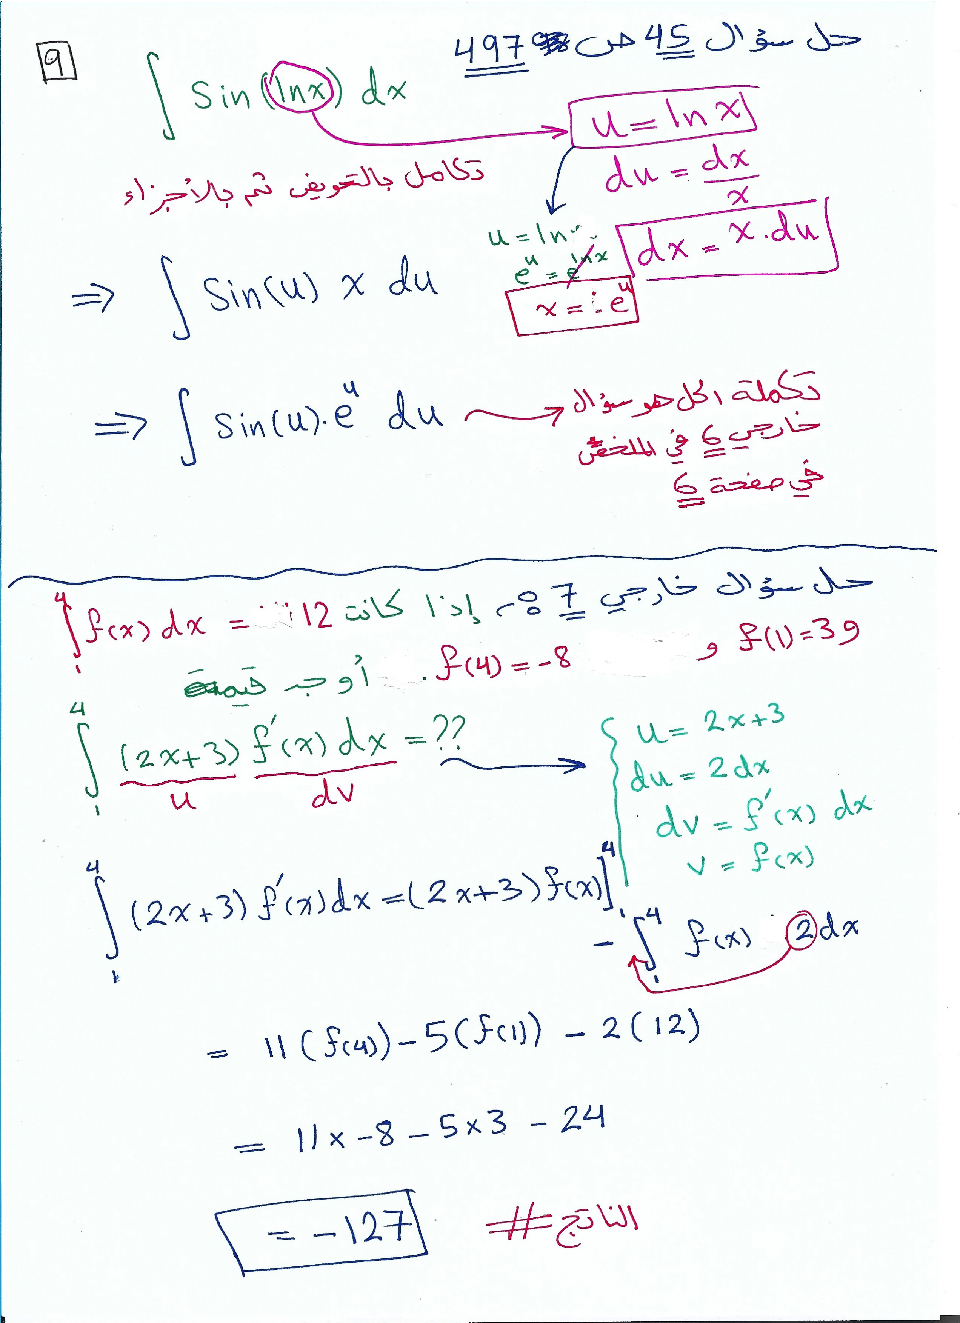 9
حل سؤال 45 ص 497
∫ Sin(lnx) dx
u = ln x
du = dx/x
تكامل بالتعويض ثم بالأجزاء
u = ln
e^u = e^lnx
dx = x.du
x = e^u
⇒ ∫ Sin(u) x du
⇒ ∫ Sin(u).e^u du
تكملة الحل هو سؤال
خارجي 6 في الملخص
في صفحة 6
حل سؤال خارجي 7 : إذا كانت ∫₁⁴ f(x) dx = 12
و f(1)=3 و f(4)=-8 . أوجد قيمة
∫₁⁴ (2x+3) f′(x) dx = ??
u dv
u = 2x+3
du = 2dx
dv = f′(x) dx
v = f(x)
∫₁⁴ (2x+3) f′(x)dx = (2x+3)f(x)]₁⁴
- ∫₁⁴ f(x) 2dx
= 11(f(4)) - 5(f(1)) - 2(12)
= 11x -8 - 5x3 - 24
= -127
الناتج #